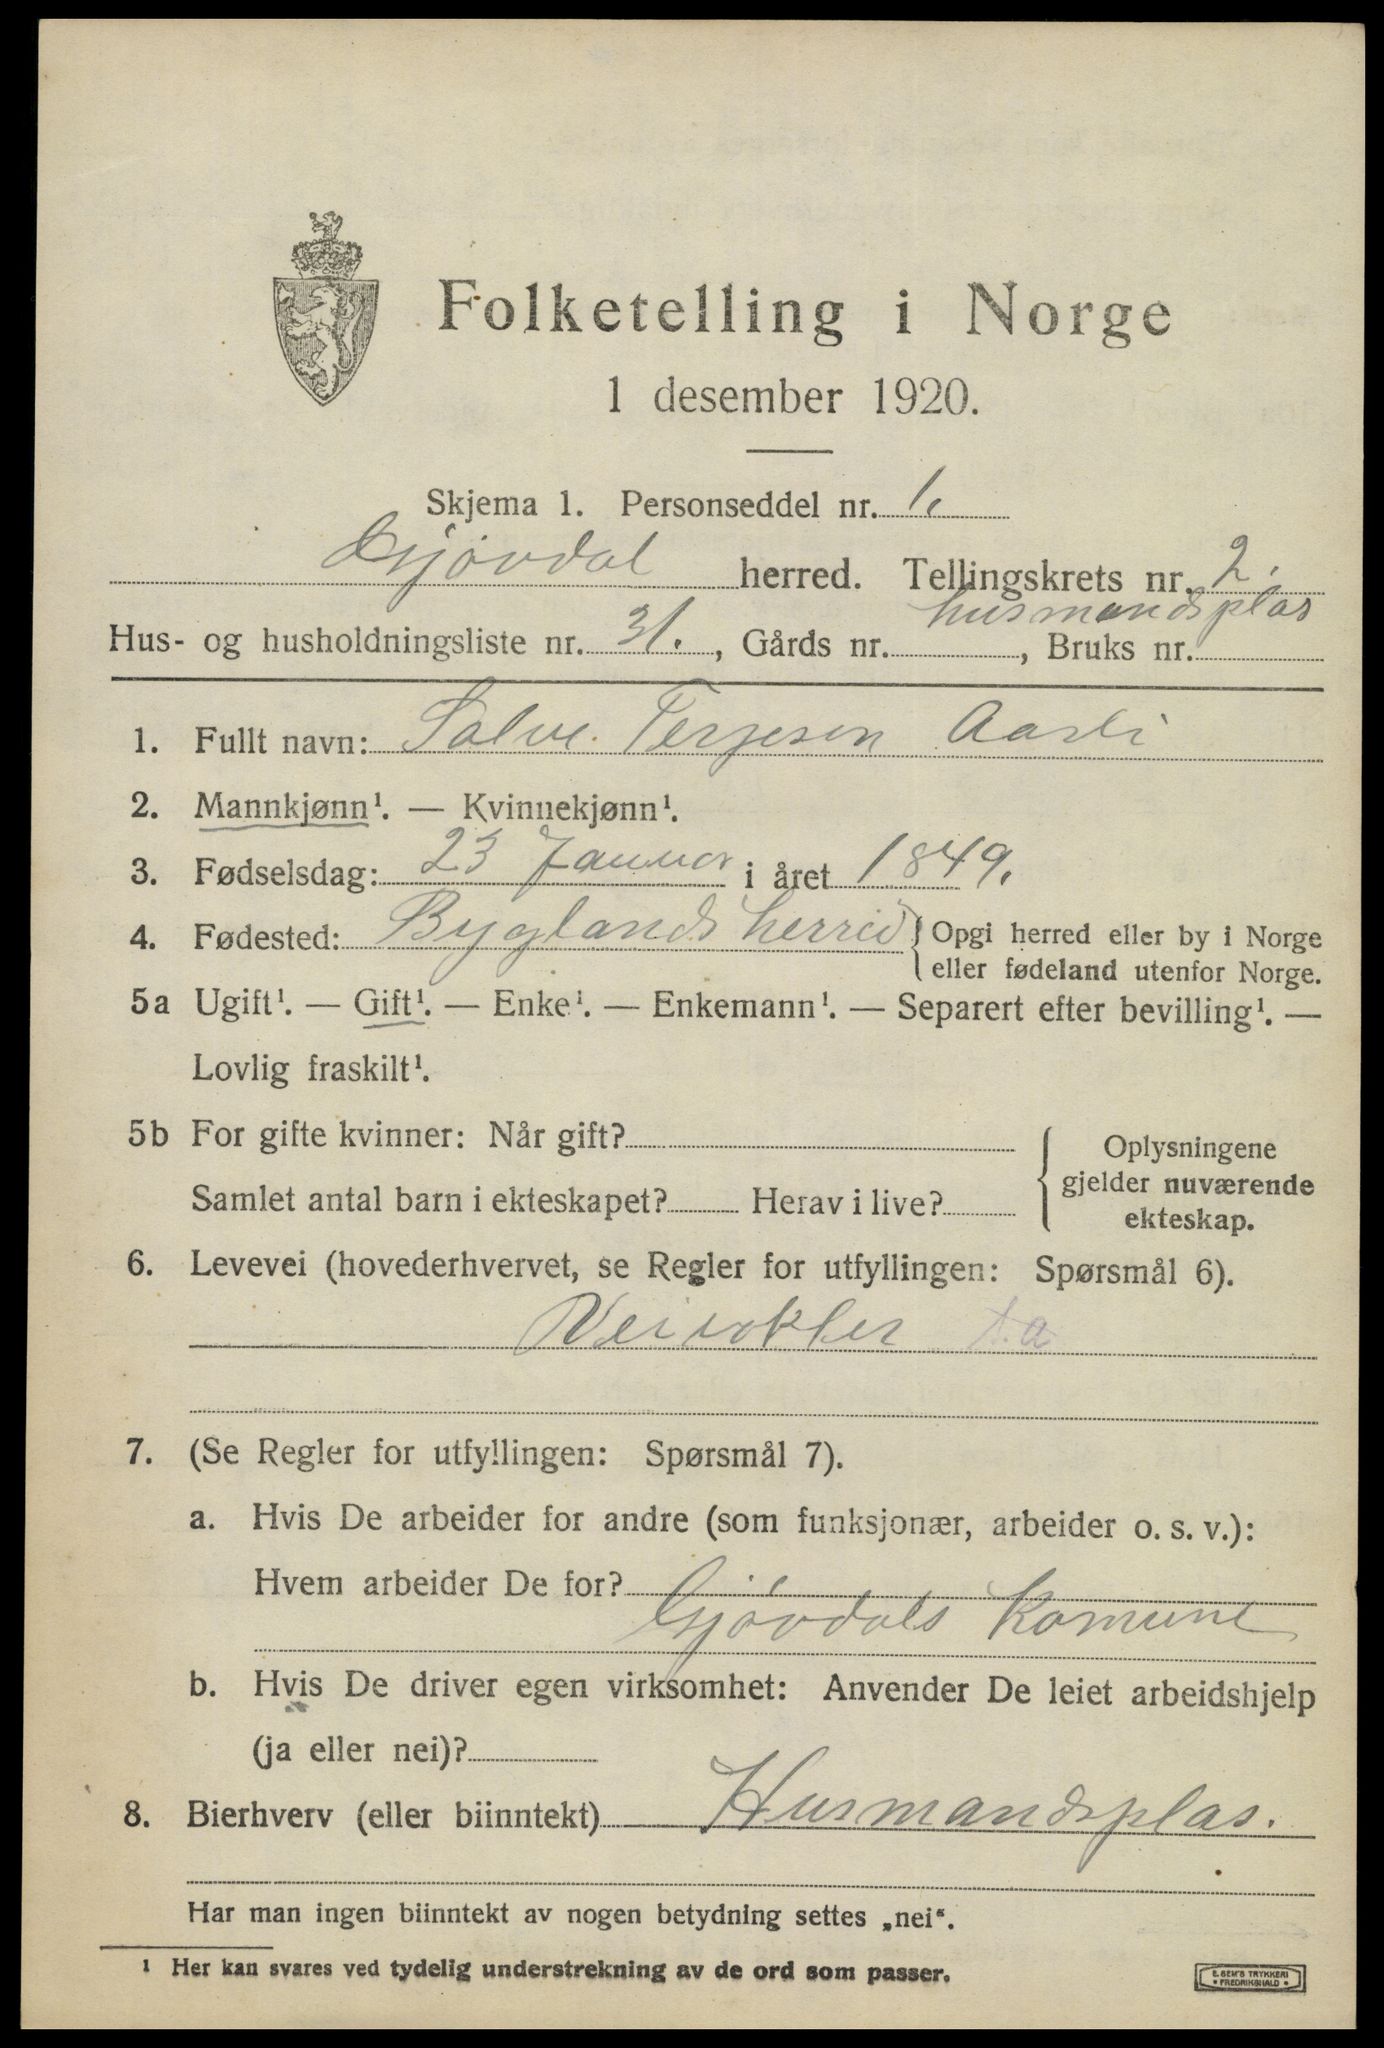 Folketelling i Norge
1 desember 1920.
Skjema 1. Personseddel nr. 1.
Gjövdal herred. Tellingskrets nr. 2.
husmandsplas
Hus- og husholdningsliste nr. 31., Gårds nr. , Bruks nr.
1. Fullt navn: Salve Terjesen Aasli
2. Mannkjønn¹. — Kvinnekjønn¹.
3. Fødselsdag: 23 Januar i året 1849.
4. Fødested: Byglands herred { Opgi herred eller by i Norge
eller fødeland utenfor Norge.
5a Ugift¹. — Gift¹. — Enke¹. — Enkemann¹. — Separert efter bevilling¹. —
Lovlig fraskilt¹.
5b For gifte kvinner: Når gift?
Samlet antal barn i ekteskapet? Herav i live?
Oplysningene
gjelder nuværende
ekteskap.
6. Levevei (hovederhvervet, se Regler for utfyllingen: Spørsmål 6).
Veivokter
7. (Se Regler for utfyllingen: Spørsmål 7).
a. Hvis De arbeider for andre (som funksjonær, arbeider o. s. v.):
Hvem arbeider De for?
Gjövdals Komune
b. Hvis De driver egen virksomhet: Anvender De leiet arbeidshjelp
(ja eller nei)?
8. Bierhverv (eller biinntekt) Husmandsplas.
Har man ingen biinntekt av nogen betydning settes „nei“.
¹ Her kan svares ved tydelig understrekning av de ord som passer.
E. SEM'S TRYKKERI
FREDRIKSHALD